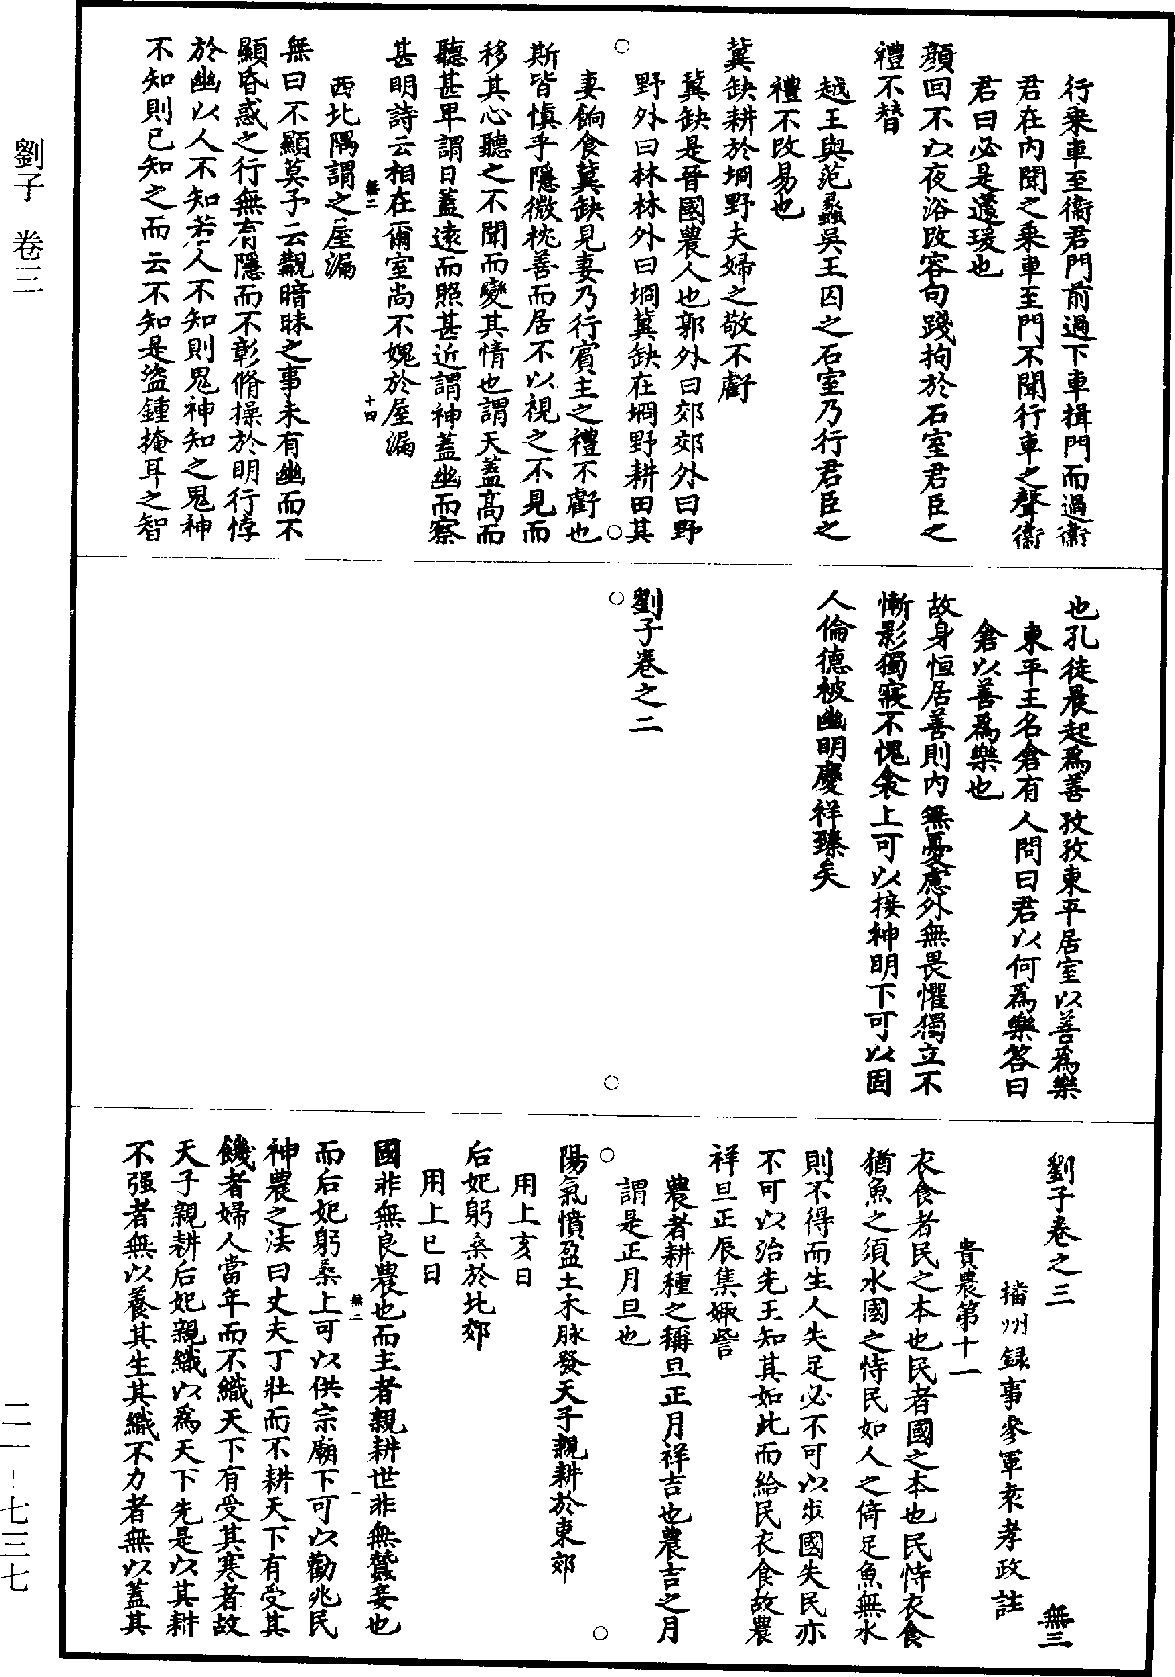 行乘車至衛君門前過下車揖門而過衛
君在內聞之乘車至門不聞行車之聲衛
君曰必是蘧瑗也
顏回不以夜浴改容句踐拘於石室君臣之
禮不替
越王與范蠡吳王囚之石室乃行君臣之
禮不改易也
冀缺耕於坰野夫婦之敬不虧
冀缺是晉國農人也郭外曰郊郊外曰野
野外曰林林外曰坰冀缺在坰野耕田其
妻餉食冀缺見妻乃行賓主之禮不虧也
斯皆慎乎隱微枕善而居不以視之不見而
移其心聽之不聞而變其情也謂天蓋高而
聽甚卑謂日蓋遠而照甚近謂神蓋幽而察
甚明詩云相在爾室尚不媿於屋漏
無二
十四
西北隅謂之屋漏
無曰不顯莫予云覯暗昧之事未有幽而不
顯昏惑之行無有隱而不彰脩操於明行悖
於幽以人不知若人不知則鬼神知之鬼神
不知則己知之而云不知是盜鍾掩耳之智
也孔徒晨起為善孜孜東平居室以善為樂
東平王名倉有人問曰君以何為樂答曰
倉以善為樂也
故身恒居善則內無憂慮外無畏懼獨立不
慚影獨寢不愧衾上可以接神明下可以固
人倫德被幽明慶祥臻矣
劉子卷之二
劉子卷之三
無三
播州録事參軍袁孝政註
貴農第十一
衣食者民之本也民者國之本也民恃衣食
猶魚之須水國之恃民如人之倚足魚無水
則不得而生人失足必不可以步國失民亦
不可以治先王知其如此而給民衣食故農
祥旦正辰集娵訾
農者耕種之稱旦正月祥吉也農吉之月
謂是正月旦也
陽氣憤盈土木脉發天子親耕於東郊
用上亥日
后妃躬桑於北郊
用上巳日
國非無良農也而主者親耕世非無蠶妾也
而后妃躬桑上可以供宗廟下可以勸兆民
無二
一
神農之法曰丈夫丁壯而不耕天下有受其
饑者婦人當年而不織天下有受其寒者故
天子親耕后妃親織以為天下先是以其耕
不强者無以養其生其織不力者無以蓋其
劉子 卷三
二一-七三七